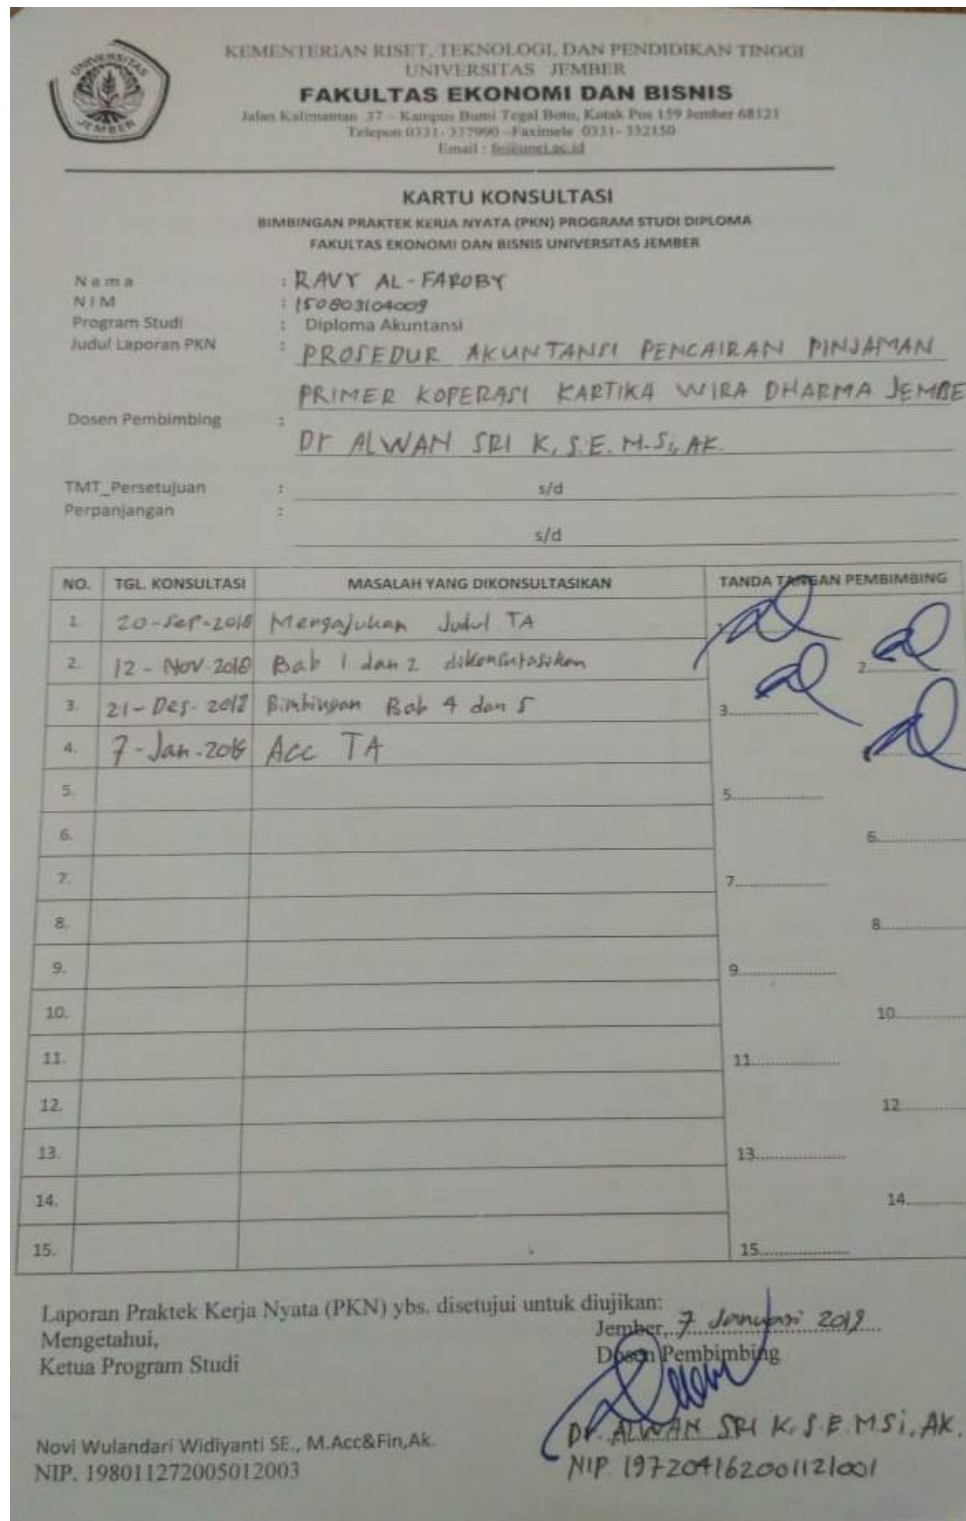 UNIVERSITAS
JEMBER
KEMENTERIAN RISET, TEKNOLOGI, DAN PENDIDIKAN TINGGI
UNIVERSITAS JEMBER
FAKULTAS EKONOMI DAN BISNIS
Jalan Kalimantan 37 – Kampus Bumi Tegal Boto, Kotak Pos 159 Jember 68121
Telepon 0331- 337990 –Faximele 0331- 332150
Email :
KARTU KONSULTASI
BIMBINGAN PRAKTEK KERJA NYATA (PKN) PROGRAM STUDI DIPLOMA
FAKULTAS EKONOMI DAN BISNIS UNIVERSITAS JEMBER
N a m a : RAVY AL-FAROBY
N I M : 150803104009
Program Studi : Diploma Akuntansi
Judul Laporan PKN : PROSEDUR AKUNTANSI PENCAIRAN PINJAMAN
PRIMER KOPERASI KARTIKA WIRA DHARMA JEMBE
Dosen Pembimbing :
Dr ALWAN SRI K, S.E. M.Si, AK.
TMT_Persetujuan : s/d
Perpanjangan :
s/d
NO. TGL. KONSULTASI MASALAH YANG DIKONSULTASIKAN TANDA TANGAN PEMBIMBING
1. 20-Sep-2018 Mengajukan Judul TA
2. 12 - Nov-2018 Bab 1 dan 2 dikonsutasikan 2
3. 21-Des-2018 Bimbingan Bab 4 dan 5 3
4. 7-Jan-2019 Acc TA
5. 5
6. 6
7. 7
8. 8
9. 9
10. 10
11. 11
12. 12
13. 13
14. 14
15. 15
Laporan Praktek Kerja Nyata (PKN) ybs. disetujui untuk diujikan:
Jember, 7 Januari 2019
Mengetahui,
Dosen Pembimbing
Ketua Program Studi
Dr. ALWAN SRI K, S.E. M.Si, AK.
Novi Wulandari Widiyanti SE., M.Acc&Fin,Ak.
NIP 197204162001121001
NIP. 198011272005012003